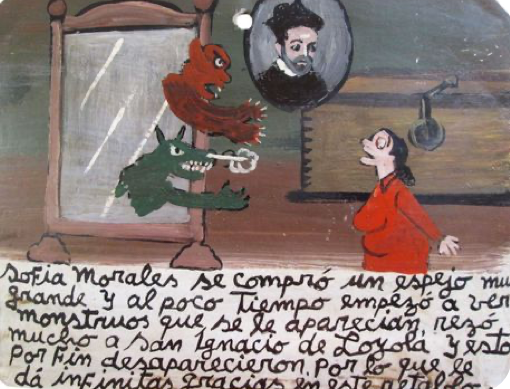 Sofia Morales se compró un espejo mu
grande y al poco Tiempo empezó a ver
monstruos que se le aparecian, rezó
mucho a San Ignacio de Loyola y esto
Por Fin desaparecieron. Por lo que le
dá infinitas gracias en este retablo